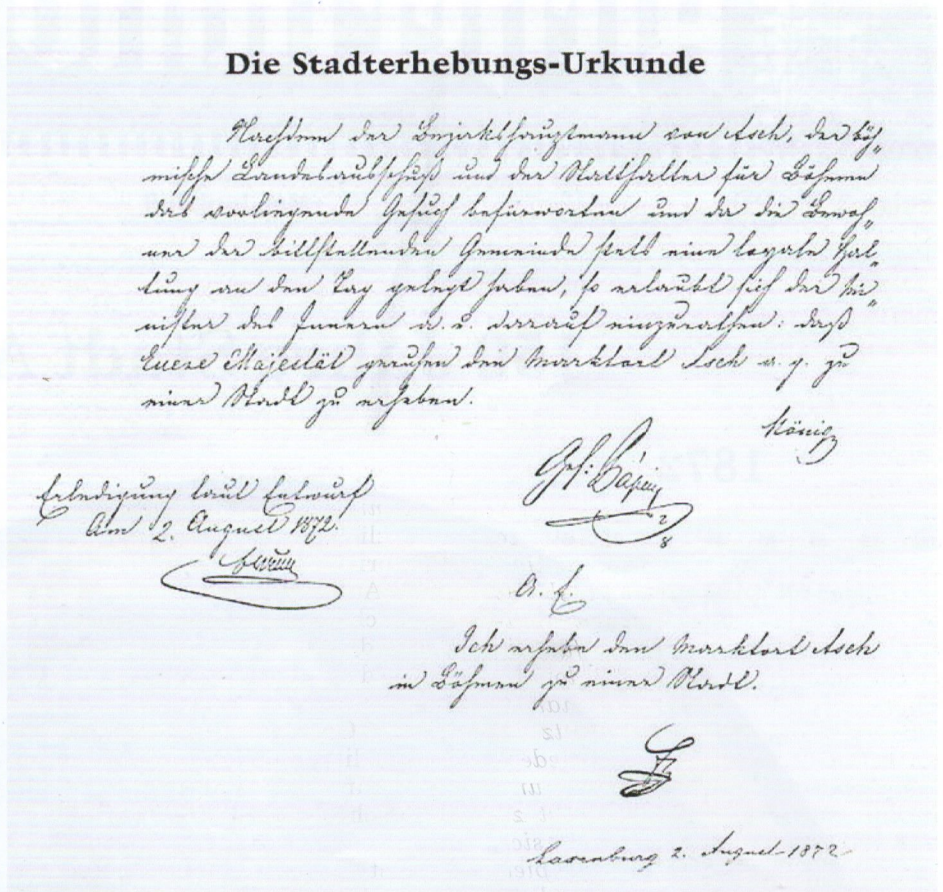 Die Stadterhebungs-Urkunde
Nachdem der Bezirkshauptmann von Asch, der böh„
mische Landesausschuß und der Statthalter für Böhmen
das vorliegende Gesuch befürworten und da die Bewoh„
ner der bittstellenden Gemeinde stets eine loyale Hal„
tung an den Tag gelegt haben, so erlaubt sich der Mi„
nister des Innern a. u. darauf einzurathen: daß
Euere Majestät geruhen den Marktort Asch a. g. zu
einer Stadt zu erheben.
König
Erledigung laut Entwurf
Am 2. August 1872.
Ges:
2
8
A. E.
Ich erhebe den Marktort Asch
in Böhmen zu einer Stadt.
Laxenburg 2. August 1872